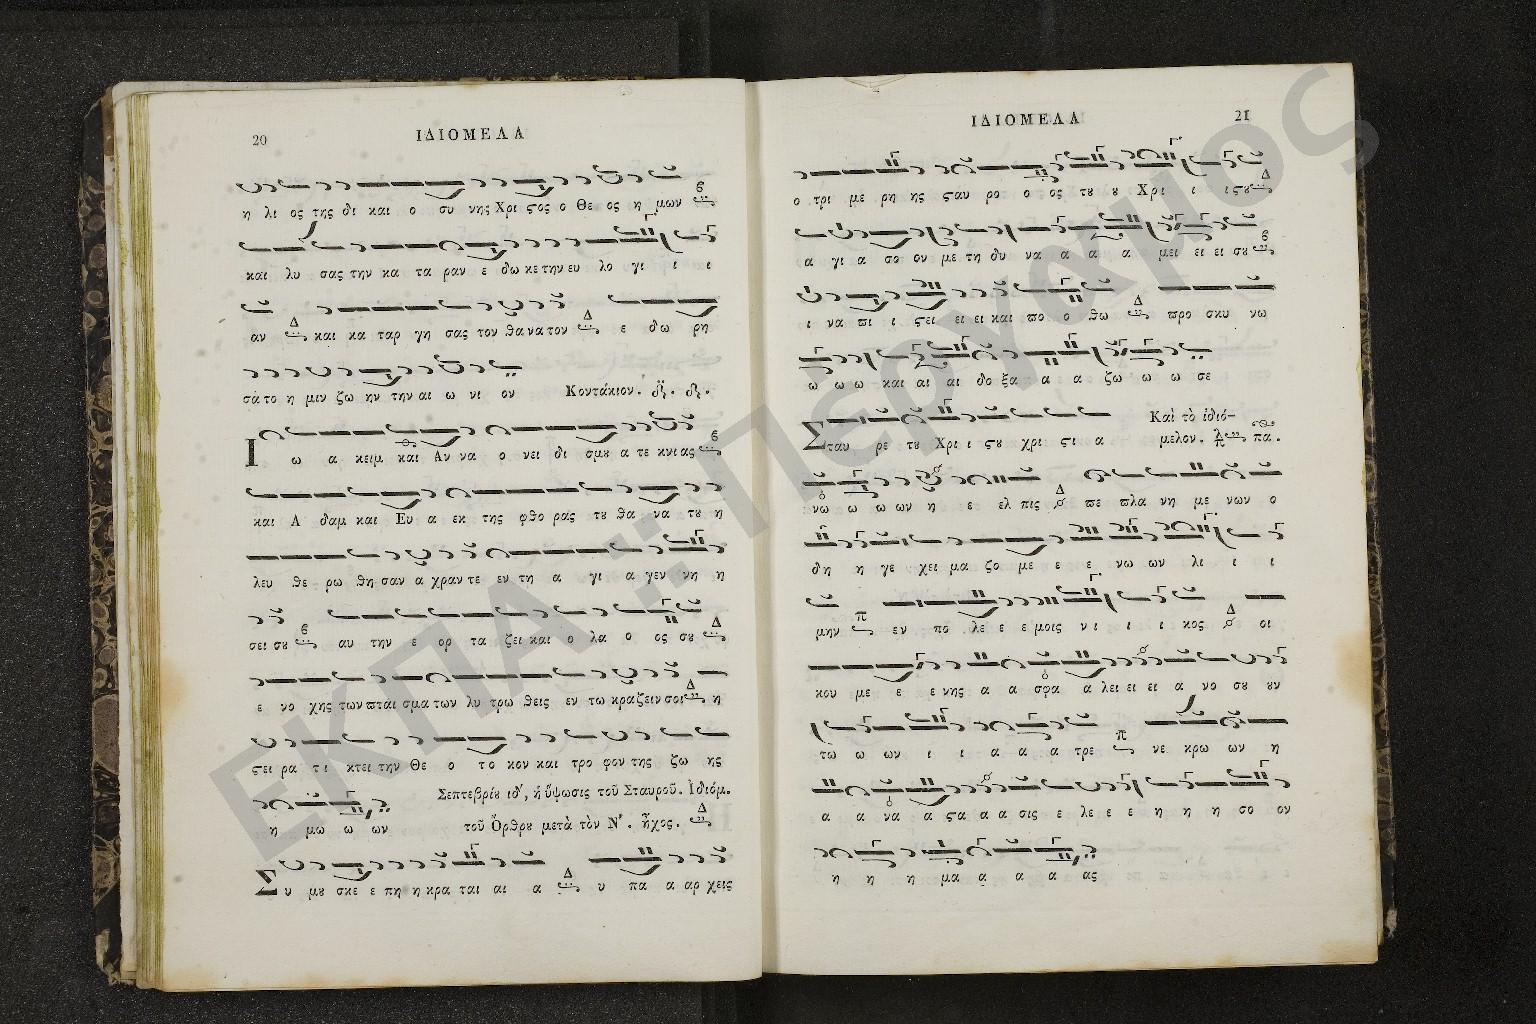 20
ΙΔΙΟΜΕΛΑ
η λι ος της δι και ο συ νης Χρι ϛος ο Θε ος η μων
και λυ σας την κα τα ραν ε δω κε την ευ λο γι ι ι
αν και κα ταρ γη σας τον θα να τον ε δω ρη
σα το η μιν ζω ην την αι ω νι ον Κοντάκιον.
Ι ω α κειμ και Αν να ο νει δι σμȣ α τε κνι ας
και Α δαμ και Ευ α εκ της φθο ρας τȣ θα να τȣ η
λευ θε ρω θη σαν α χραν τε εν τη α γι α γεν νη η
σει σȣ αυ την ε ορ τα ζει και ο λα ο ος σȣ
ε νο χης των πται σμα των λυ τρω θεις εν τω κραζειν σοι η
ϛει ρα τι κτει την Θε ο το κον και τρο φον της ζω ης
η μω ω ων
Σεπτεβρίȣ ιδ', ἡ ὕψωσις τοῦ Σταυροῦ. Ἰδιόμ.
τοῦ Ὄρθρȣ μετὰ τὸν Ν'. ἦχος.
Σ υ μȣ σκε ε πη η κρα ται αι α υ πα α αρ χεις
ΙΔΙΟΜΕΛΑ
21
ο τρι με ρη ης ϛαυ ρο ο ος τȣ ȣ Χρι ι ι ϛȣ
α γι α σο ον με τη δυ να α α α μει ει ει σȣ
ι να πι ι ϛει ει ει και πο ο θω προ σκυ νω
ω ω ω και αι αι δο ξα α α ζω ω ω σε
Σταυ ρε τȣ Χρι ι ϛȣ χρι ϛι α
Καὶ τὸ ἰδιό-
μελον. πα.
νω ω ω ων η ε ελ πις πε πλα νη με νων ο
δη η γε χει μα ζο με ε ε νω ων λι ι ι
μην εν πο λε ε ε μοις νι ι ι κος οι
κου με ε ε νης α α σφα α λει ει ει α νο σȣ ȣν
τω ω ων ι ι α α α τρε νε κρω ων η
α α να α ϛα α α σις ε λε ε ε η η η σο ον
η η η μα α α α ας
ΕΚΠΑ :: Πέργαμος